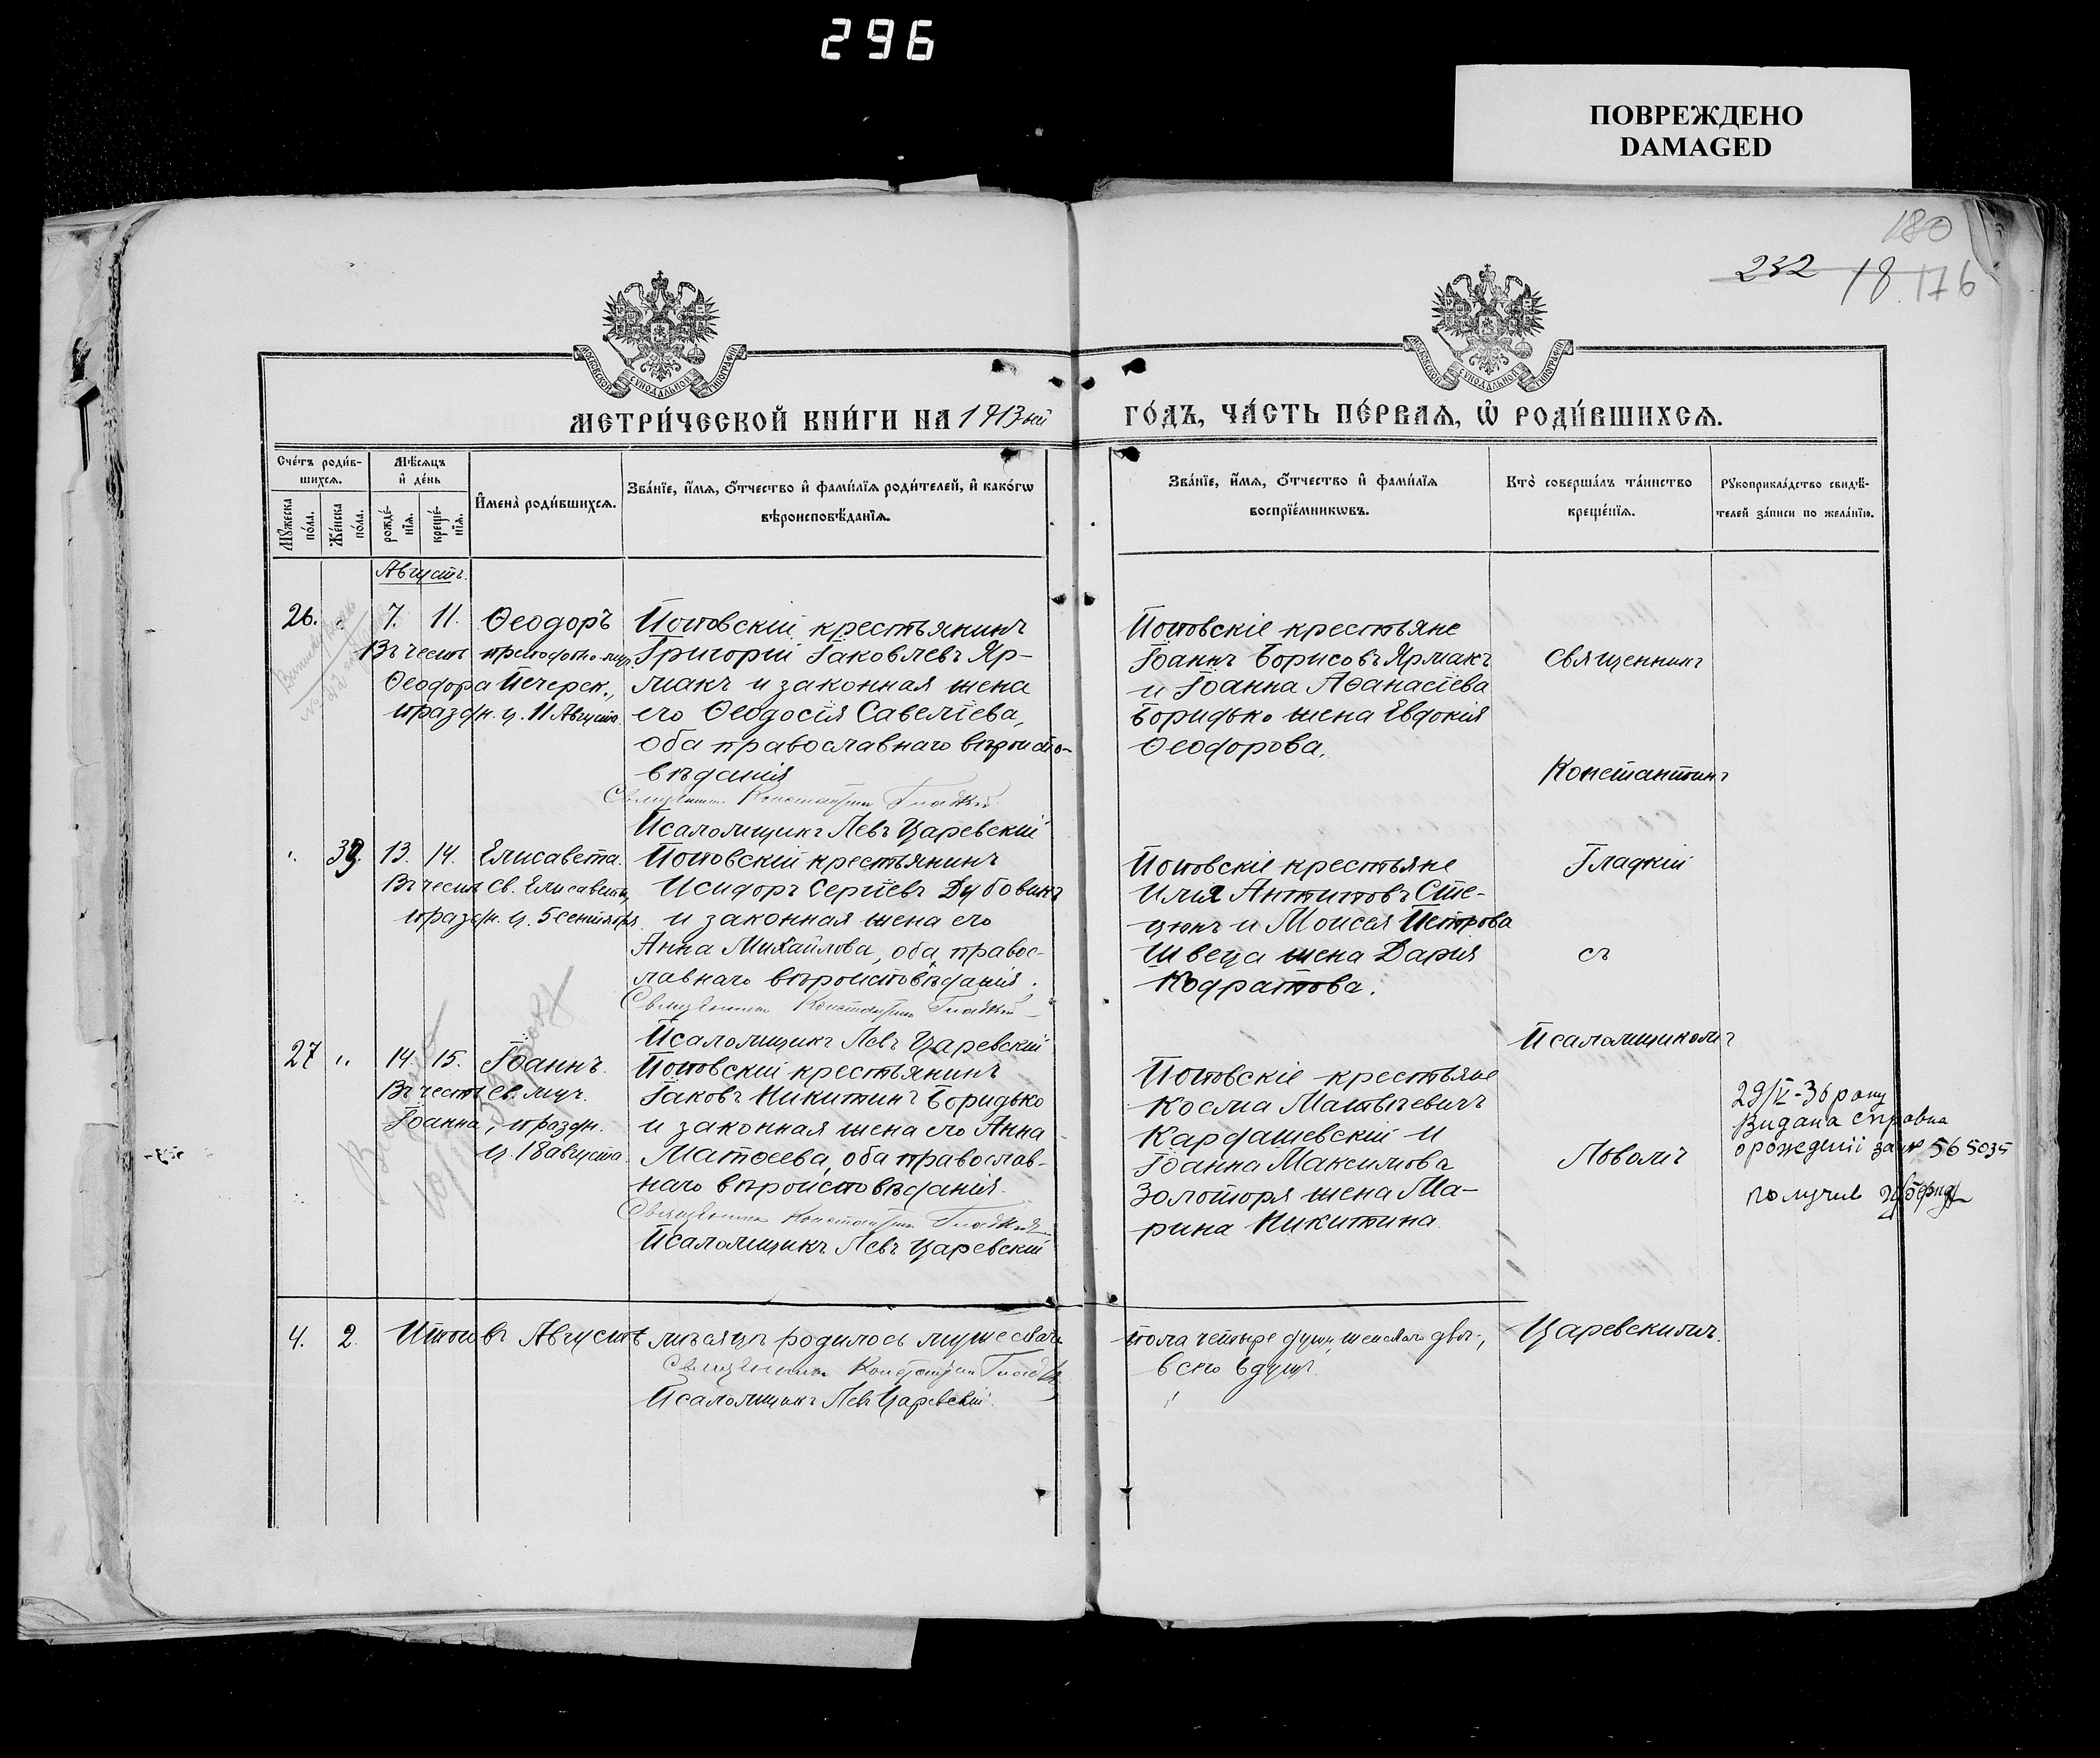 296
ПОВРЕЖДЕНО
DAMAGED
180
232 18 176
МОСКОВСКОЙ СУНОДАЛЬНОЙ ТИПОГРАФІИ
МОСКОВСКОЙ СУНОДАЛЬНОЙ ТИПОГРАФІИ
МЕТРИ́ЧЕСКОЙ КНИ́ГИ НА 1913ый
ГО́ДЪ, ЧА́СТЬ ПЕ́РВАѦ, Ѽ РОДИ́ВШИХСѦ.
Сче́тъ роди́в-
шихсѧ.
Мѣ́сѧцъ
и҆ де́нь
Мꙋ́жеска
по́ла.
Же́нска
по́ла.
рожде́-
нїѧ.
креще́-
нїѧ.
И҆мена̀ роди́вшихсѧ.
Зва́нїе, и҆́мѧ, ѻ҆́тчество и҆ фами́лїѧ роди́телей, и҆ како́гѡ
вѣроисповѣ́данїѧ.
Зва́нїе, и҆́мѧ, ѻ҆́тчество и҆ фами́лїѧ
воспрїе́мникѡвъ.
Кто̀ соверша́лъ та́инство
креще́нїѧ.
Рꙋкоприкла́дство свидѣ́-
телей за́писи по жела́нїю.
Августъ.
26. " 7. 11. Ѳеодоръ
Въ честь преподобно-муч.
Ѳеодора Печерск.,
праздн. ц. 11 Августа.
Поповскій крестьянинъ
Григорій Іаковлевъ Яр-
макъ и законная жена
его Ѳеодосія Савеліева,
оба православнаго вѣроиспо-
вѣданія
Священникъ Константинъ Гладкій
Псаломщикъ Левъ Царевскій
Поповскіе крестьяне
Іоаннъ Борисовъ Ярмакъ
и Іоанна Аѳанасіева
Боридько жена Евдокія
Ѳеодорова.
Священникъ
Константинъ
" 13. 14. Елисавета.
Въ честь Св. Елисаветы,
праздн. ц. 5 сентября.
Поповскій крестьянинъ
Исидоръ Сергіевъ Дубовикъ
и законная жена его
Анна Михайлова, оба правос-
лавнаго вѣроисповѣданія.
Священникъ Константинъ Гладкій
Псаломщикъ Левъ Царевскій
Поповскіе крестьяне
Илія Антиповъ Сте-
цюкъ и Моисея Петрова
Швеца жена Дарія
Кодратова.
Гладкій
съ
Псаломщикомъ
27 " 14. 15. Іоаннъ.
Въ честь Св. муч.
Іоанна, праздн.
ц. 18 августа.
Поповскій крестьянинъ
Іаковъ Никитинъ Боридько
и законная жена его Анна
Матѳеева, оба православ-
наго вѣроисповѣданія.
Священникъ Константинъ Гладкій
Псаломщикъ Левъ Царевскій
Поповскіе крестьяне
Косма Матвѣевичъ
Кардашевскій и
Іоанна Максимова
Золоторя жена Ма-
рина Никитина.
Львомъ
29/V-36 року
Видана справка
о рожденіі за № 565035
получив
4. 2. Итого въ Августѣ мѣсяцѣ родилось мужескаго
пола четыре души, женскаго двѣ,
всего 6 душъ.
Священникъ Константинъ Гладкій
Псаломщикъ Левъ Царевскій.
Царевскимъ.